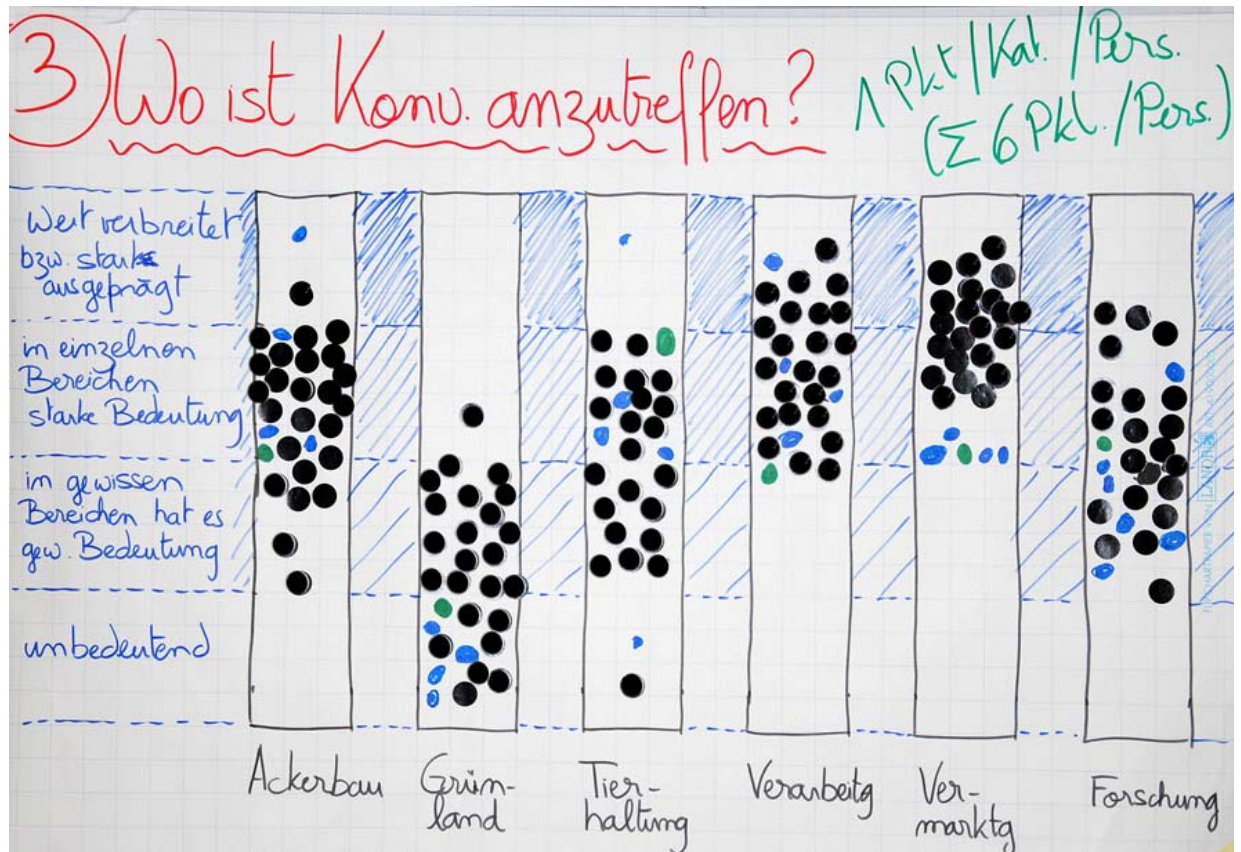 3 Wo ist Konv. anzutreffen?
1 Pkt/Kat./Pers.
(Σ 6 Pkt./Pers.)
Weit verbreitet
bzw. stark
ausgeprägt
in einzelnen
Bereichen
starke Bedeutung
im gewissen
Bereichen hat es
gew. Bedeutung
unbedeutend
Ackerbau
Grün-
land
Tier-
haltung
Verarbeitg
Ver-
marktg
Forschung